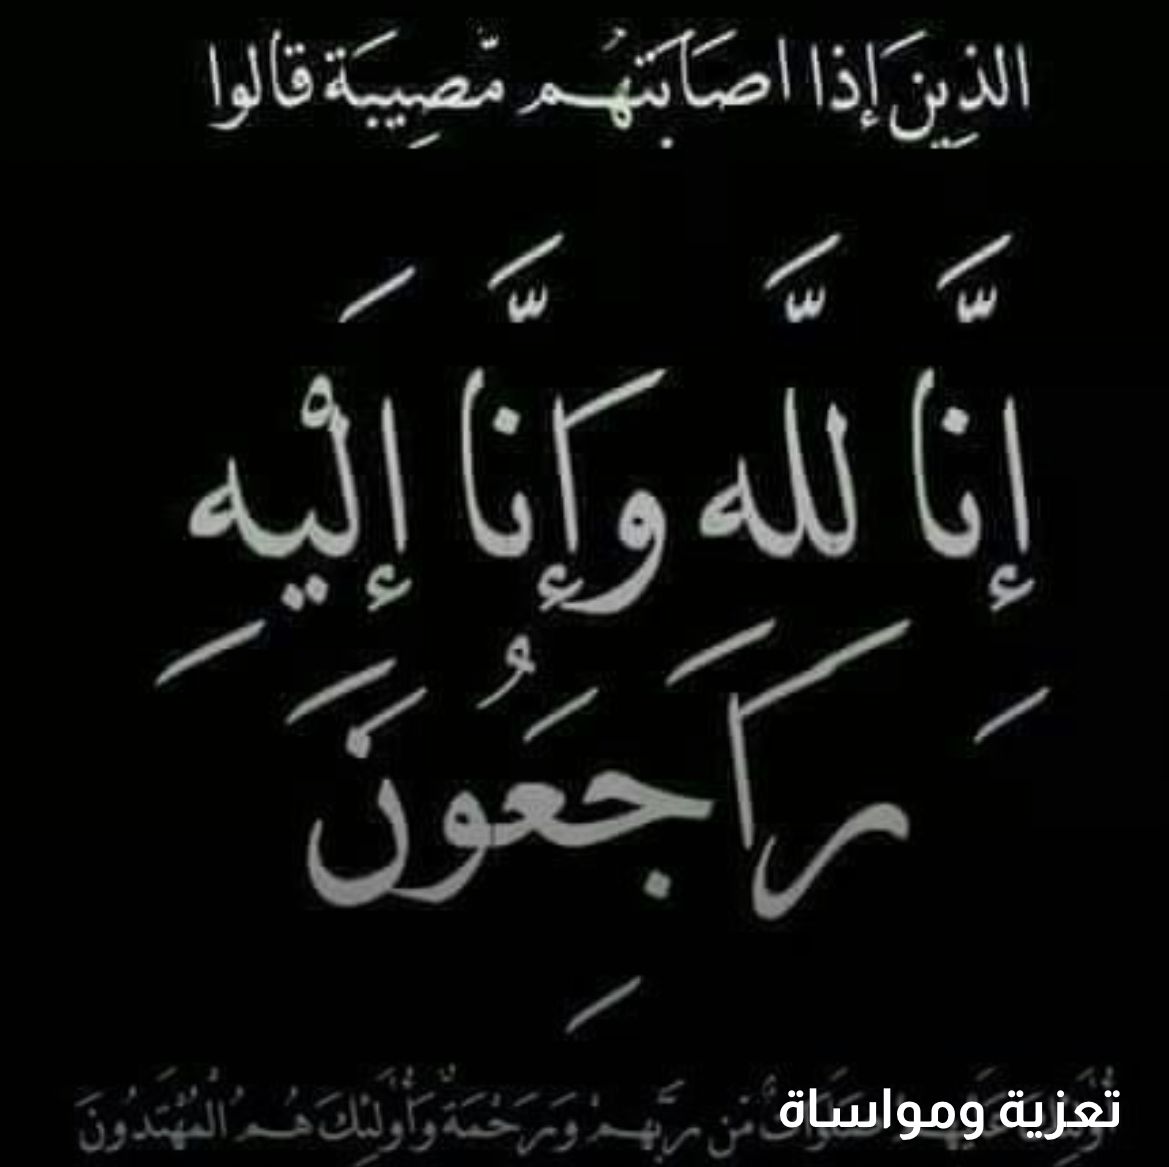 الذِينَ إِذَا اصَابَتهُم مّصِيبَة قَالوا
إِنَّا لِلَّهِ وَإِنَّا إِلَيْهِ
رَاجِعُونَ
أُولَئِكَ عَلَيْهِمْ صَلَوَاتٌ مِّن رَبِّهِمْ وَرَحْمَةٌ وَأُولَئِكَ هُمُ الْمُهْتَدُونَ
تعزية ومواساة